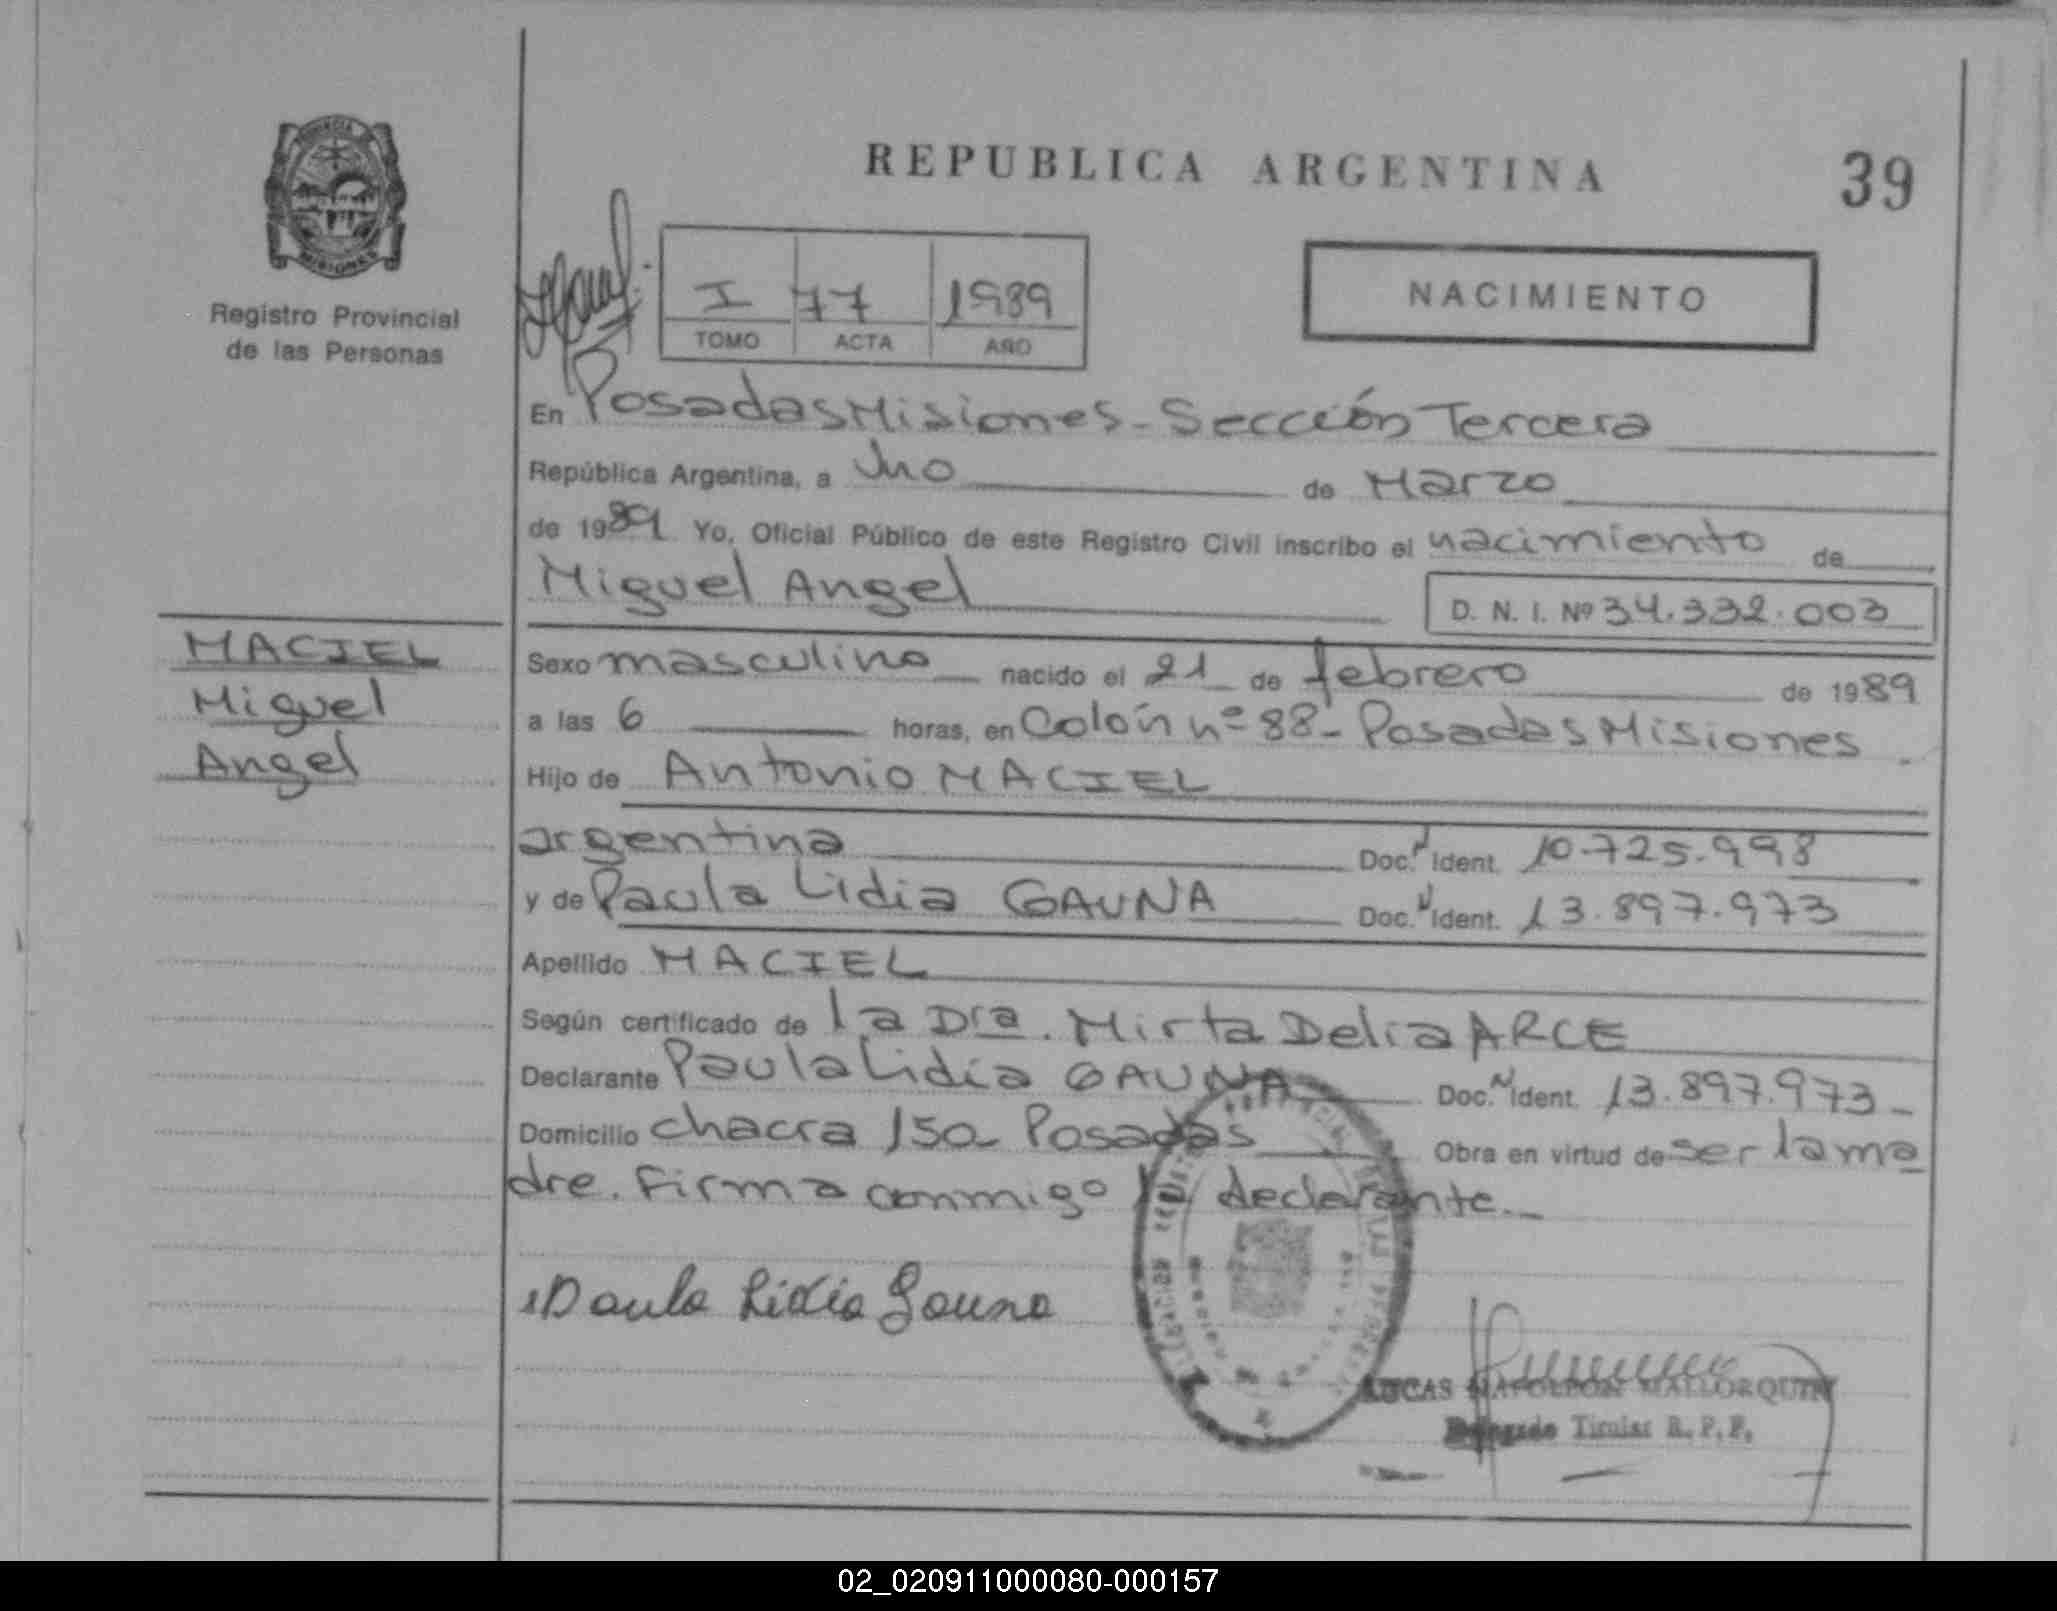 REPUBLICA ARGENTINA
39
PROVINCIA
MISIONES
Registro Provincial
de las Personas
I 77 1989
TOMO ACTA AÑO
NACIMIENTO
En Posadas Misiones - Sección Tercera
República Argentina, a Uno de Marzo
de 1989 Yo, Oficial Público de este Registro Civil inscribo el nacimiento de
Miguel Angel
D. N. I. Nº 34.332.003
MACIEL
Miguel
Angel
Sexo masculino nacido el 21 de febrero de 1989
a las 6 horas, en Colón nº 88 - Posadas Misiones
Hijo de Antonio MACIEL
argentina Doc. N Ident. 10.725.998
y de Paula Lidia GAUNA Doc. N Ident. 13.897.973
Apellido MACIEL
Según certificado de la Dra. Mirta Delia ARCE
Declarante Paula Lidia GAUNA Doc. N Ident. 13.897.973 -
Domicilio chacra 150 - Posadas Obra en virtud de ser la ma
dre. Firma conmigo la declarante. -
Paula Lidia Gauna
LUCAS NAPOLEON MALLORQUIN
Delegado Titular R. P. P.
02_020911000080-000157